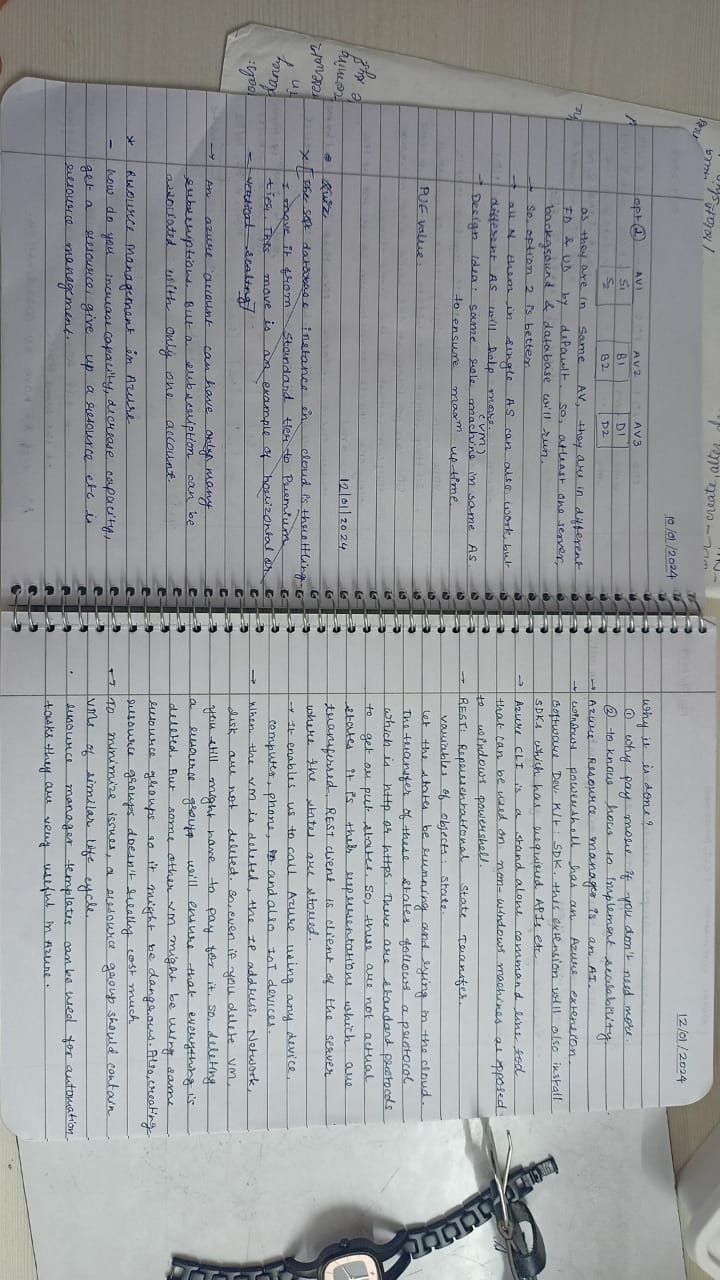 10/01/2024
opt ② AV1 AV2 AV3
S1 B1 D1
S2 B2 D2
as they are in same AV, they are in different
FD & UD by default. so, atleast one server,
background & database will run.
→ So option 2 is better
→ all of them in single AS can also work, but
different AS will help more.
(VM)
→ Design idea: same role machine in same AS
to ensure maxm up time
PUE value:
12/01/2024
Quiz
* [The SQL database instance in cloud is throttling.
I move it from Standard tier to Premium
tier. This move is an example of horizontal or
- vertical scaling]
→ An azure account can have many
subscriptions but a subscription can be
associated with only one account
* Resource management in Azure
- how do you increase capacity, decrease capacity,
get a resource, give up a resource etc is
resource management.
12/01/2024
Why it is done?
① why pay more if you don't need more.
② to know how to implement scalability.
→ Azure Resource manager is an AI.
→ windows powershell has an Azure extension.
Software Dev. Kit: SDK. this extension will also install
SDKs which has required APIs etc
→ Azure CLI is a stand alone command line tool
that can be used on non-windows machines as opposed
to windows powershell.
→ REST: Representational State Transfer.
variables of objects: state
let the state be running and lying in the cloud.
The transfer of these states follows a protocol
which is http or https. There are standard protocols
to get or put states. So, these are not actual
states it is their representations which are
transferred. REST client is client of the server
where the states are stored.
→ It enables us to call Azure using any device,
computer, phone, and also IoT devices.
→ When the VM is deleted, the IP address, Network,
disk are not deleted. so, even if you delete VM,
you still might have to pay for it. so deleting
a resource group will ensure that everything is
deleted. But some other VM might be using same
resource groups so it might be dangerous. Also, creating
resource groups doesn't really cost much
→ To minimize issues, a resource group should contain
VMs of similar life cycle
. resource manager templates can be used for automation
tasks they are very useful in Azure.